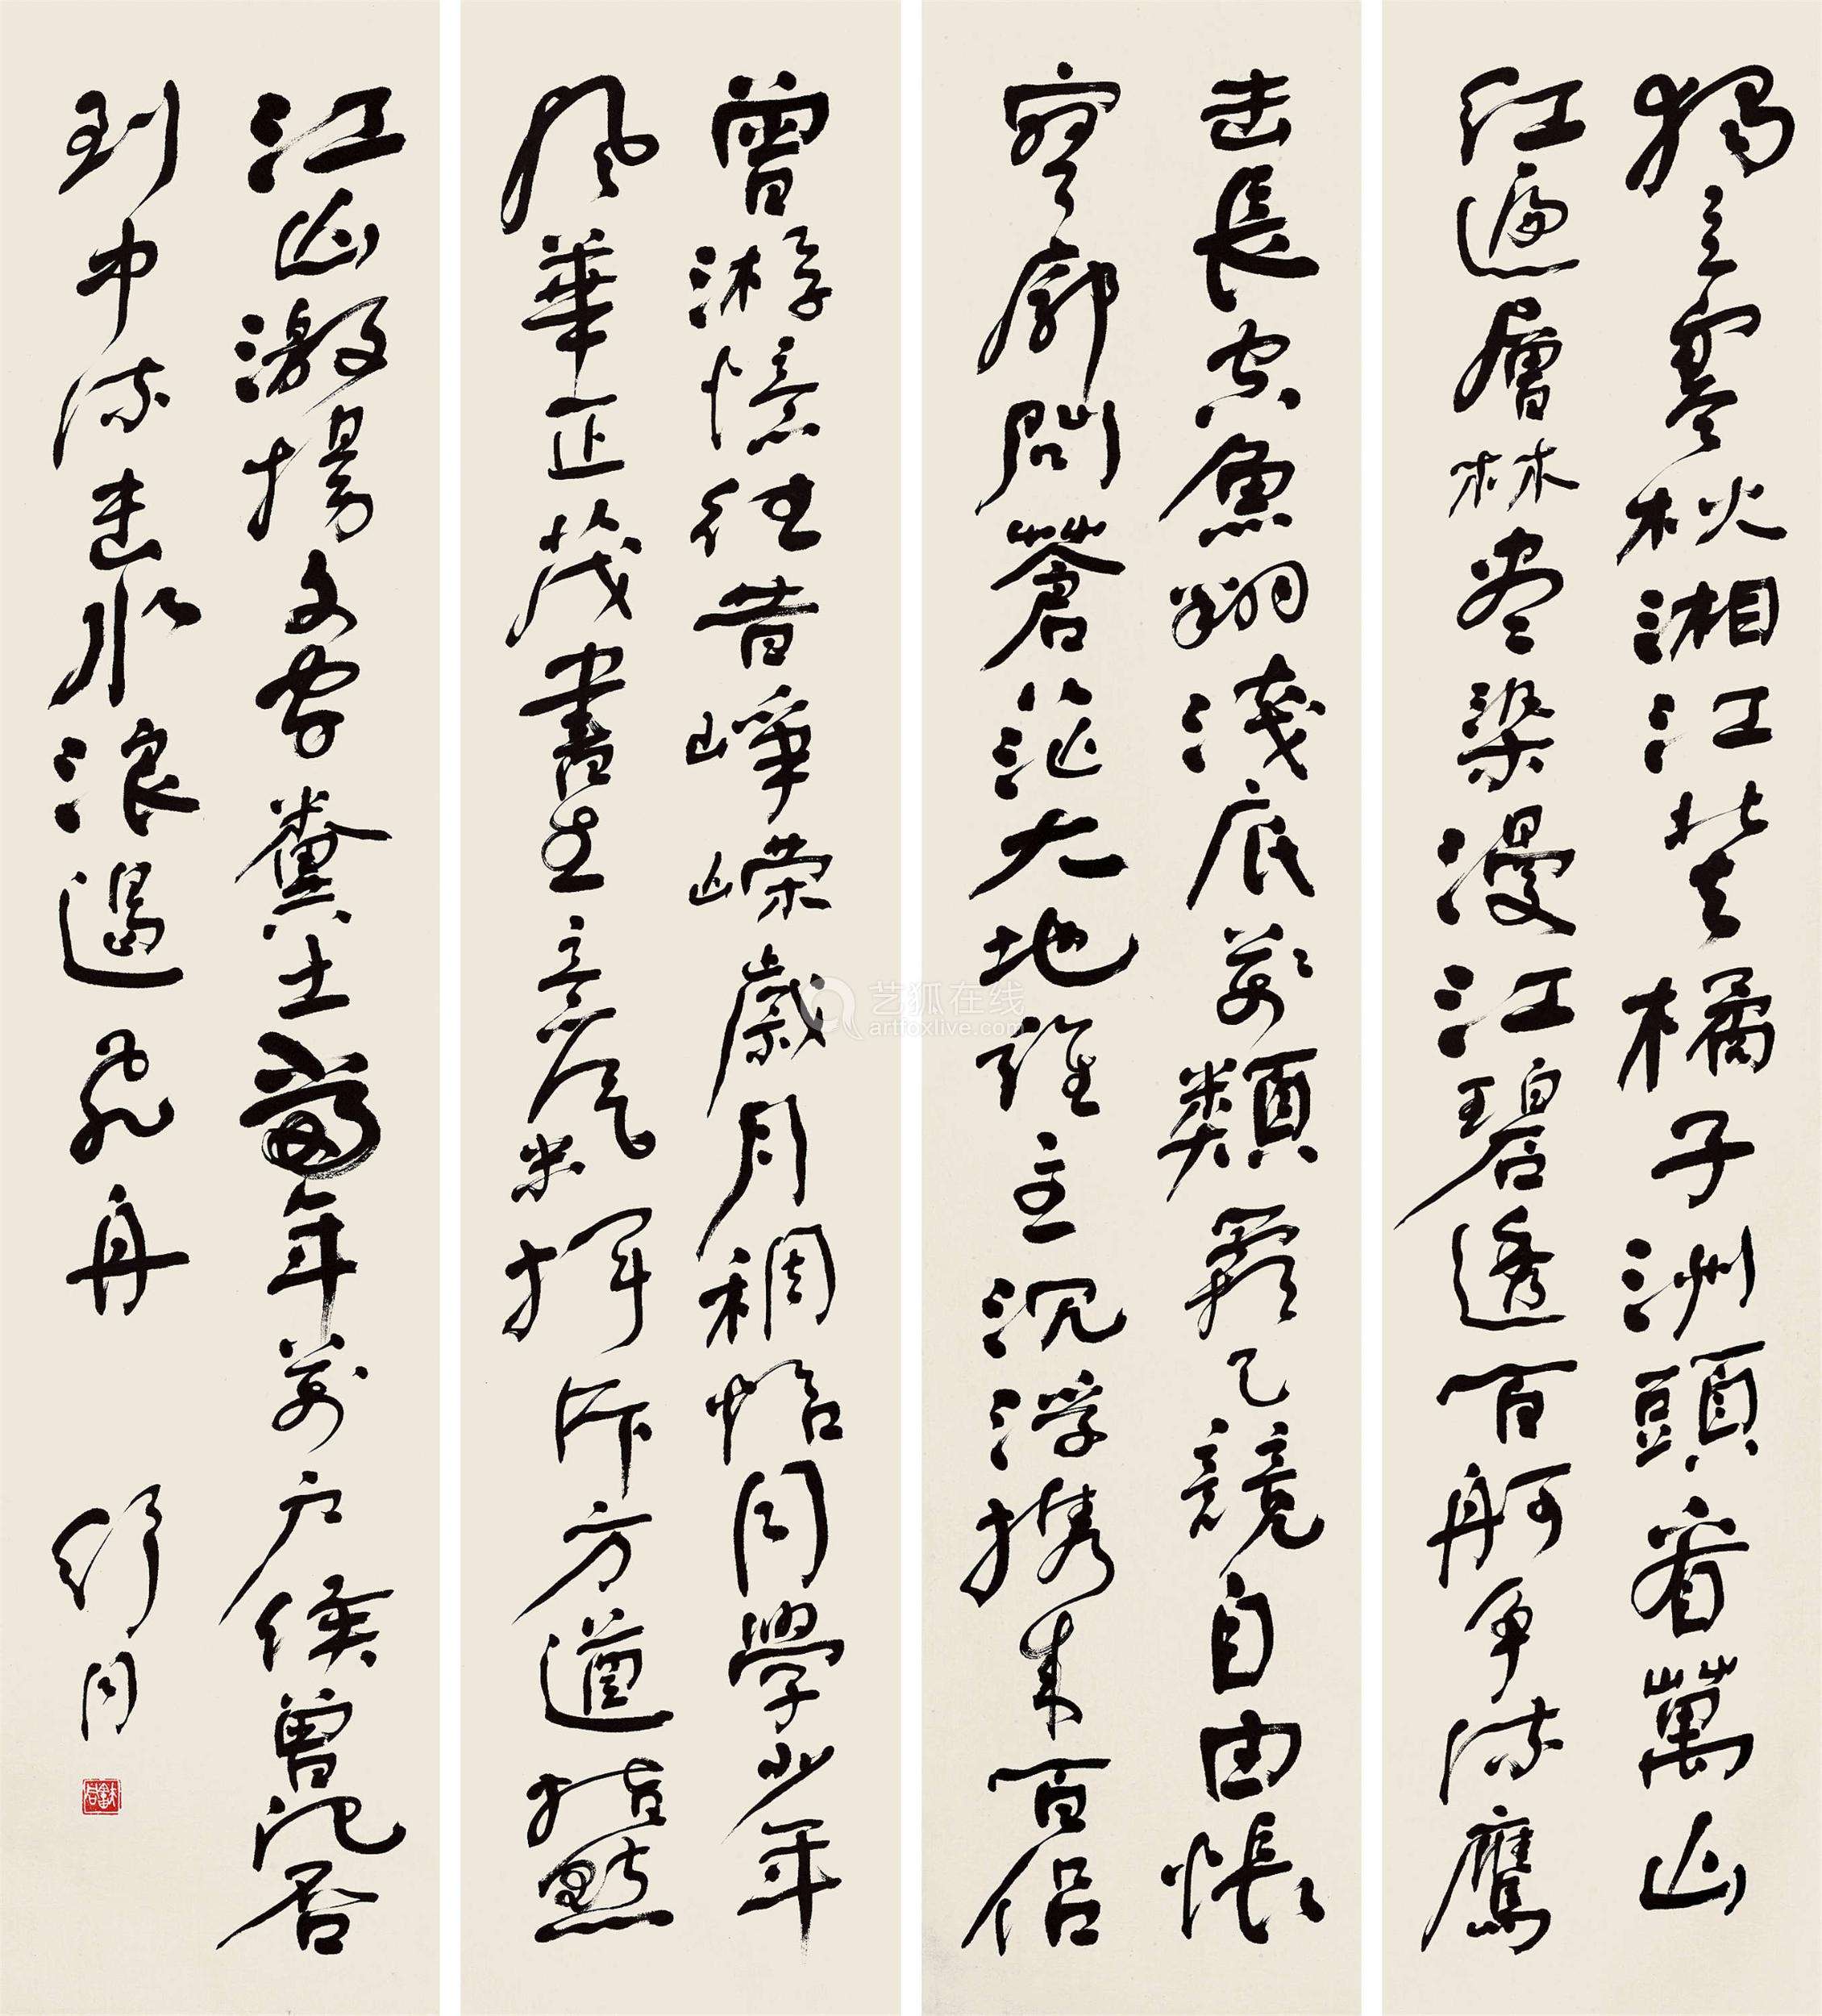 獨立寒秋湘江北去橘子洲頭看萬山
红遍層林尽染漫江碧透百舸争流鷹
击長空魚翔淺底万類霜天競自由悵
寥廓問蒼茫大地誰主沉浮携来百侣
曾游憶往昔崢嶸歲月稠恰同學少年
風華正茂書生意氣揮斥方遒指點
江山激揚文字糞土當年万户侯曾记否
到中流击水浪遏飛舟 舒同
艺狐在线
artfoxlive.com